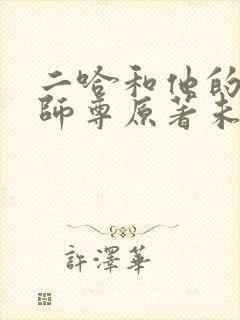 二哈和他的
師尊原著未
許澤華